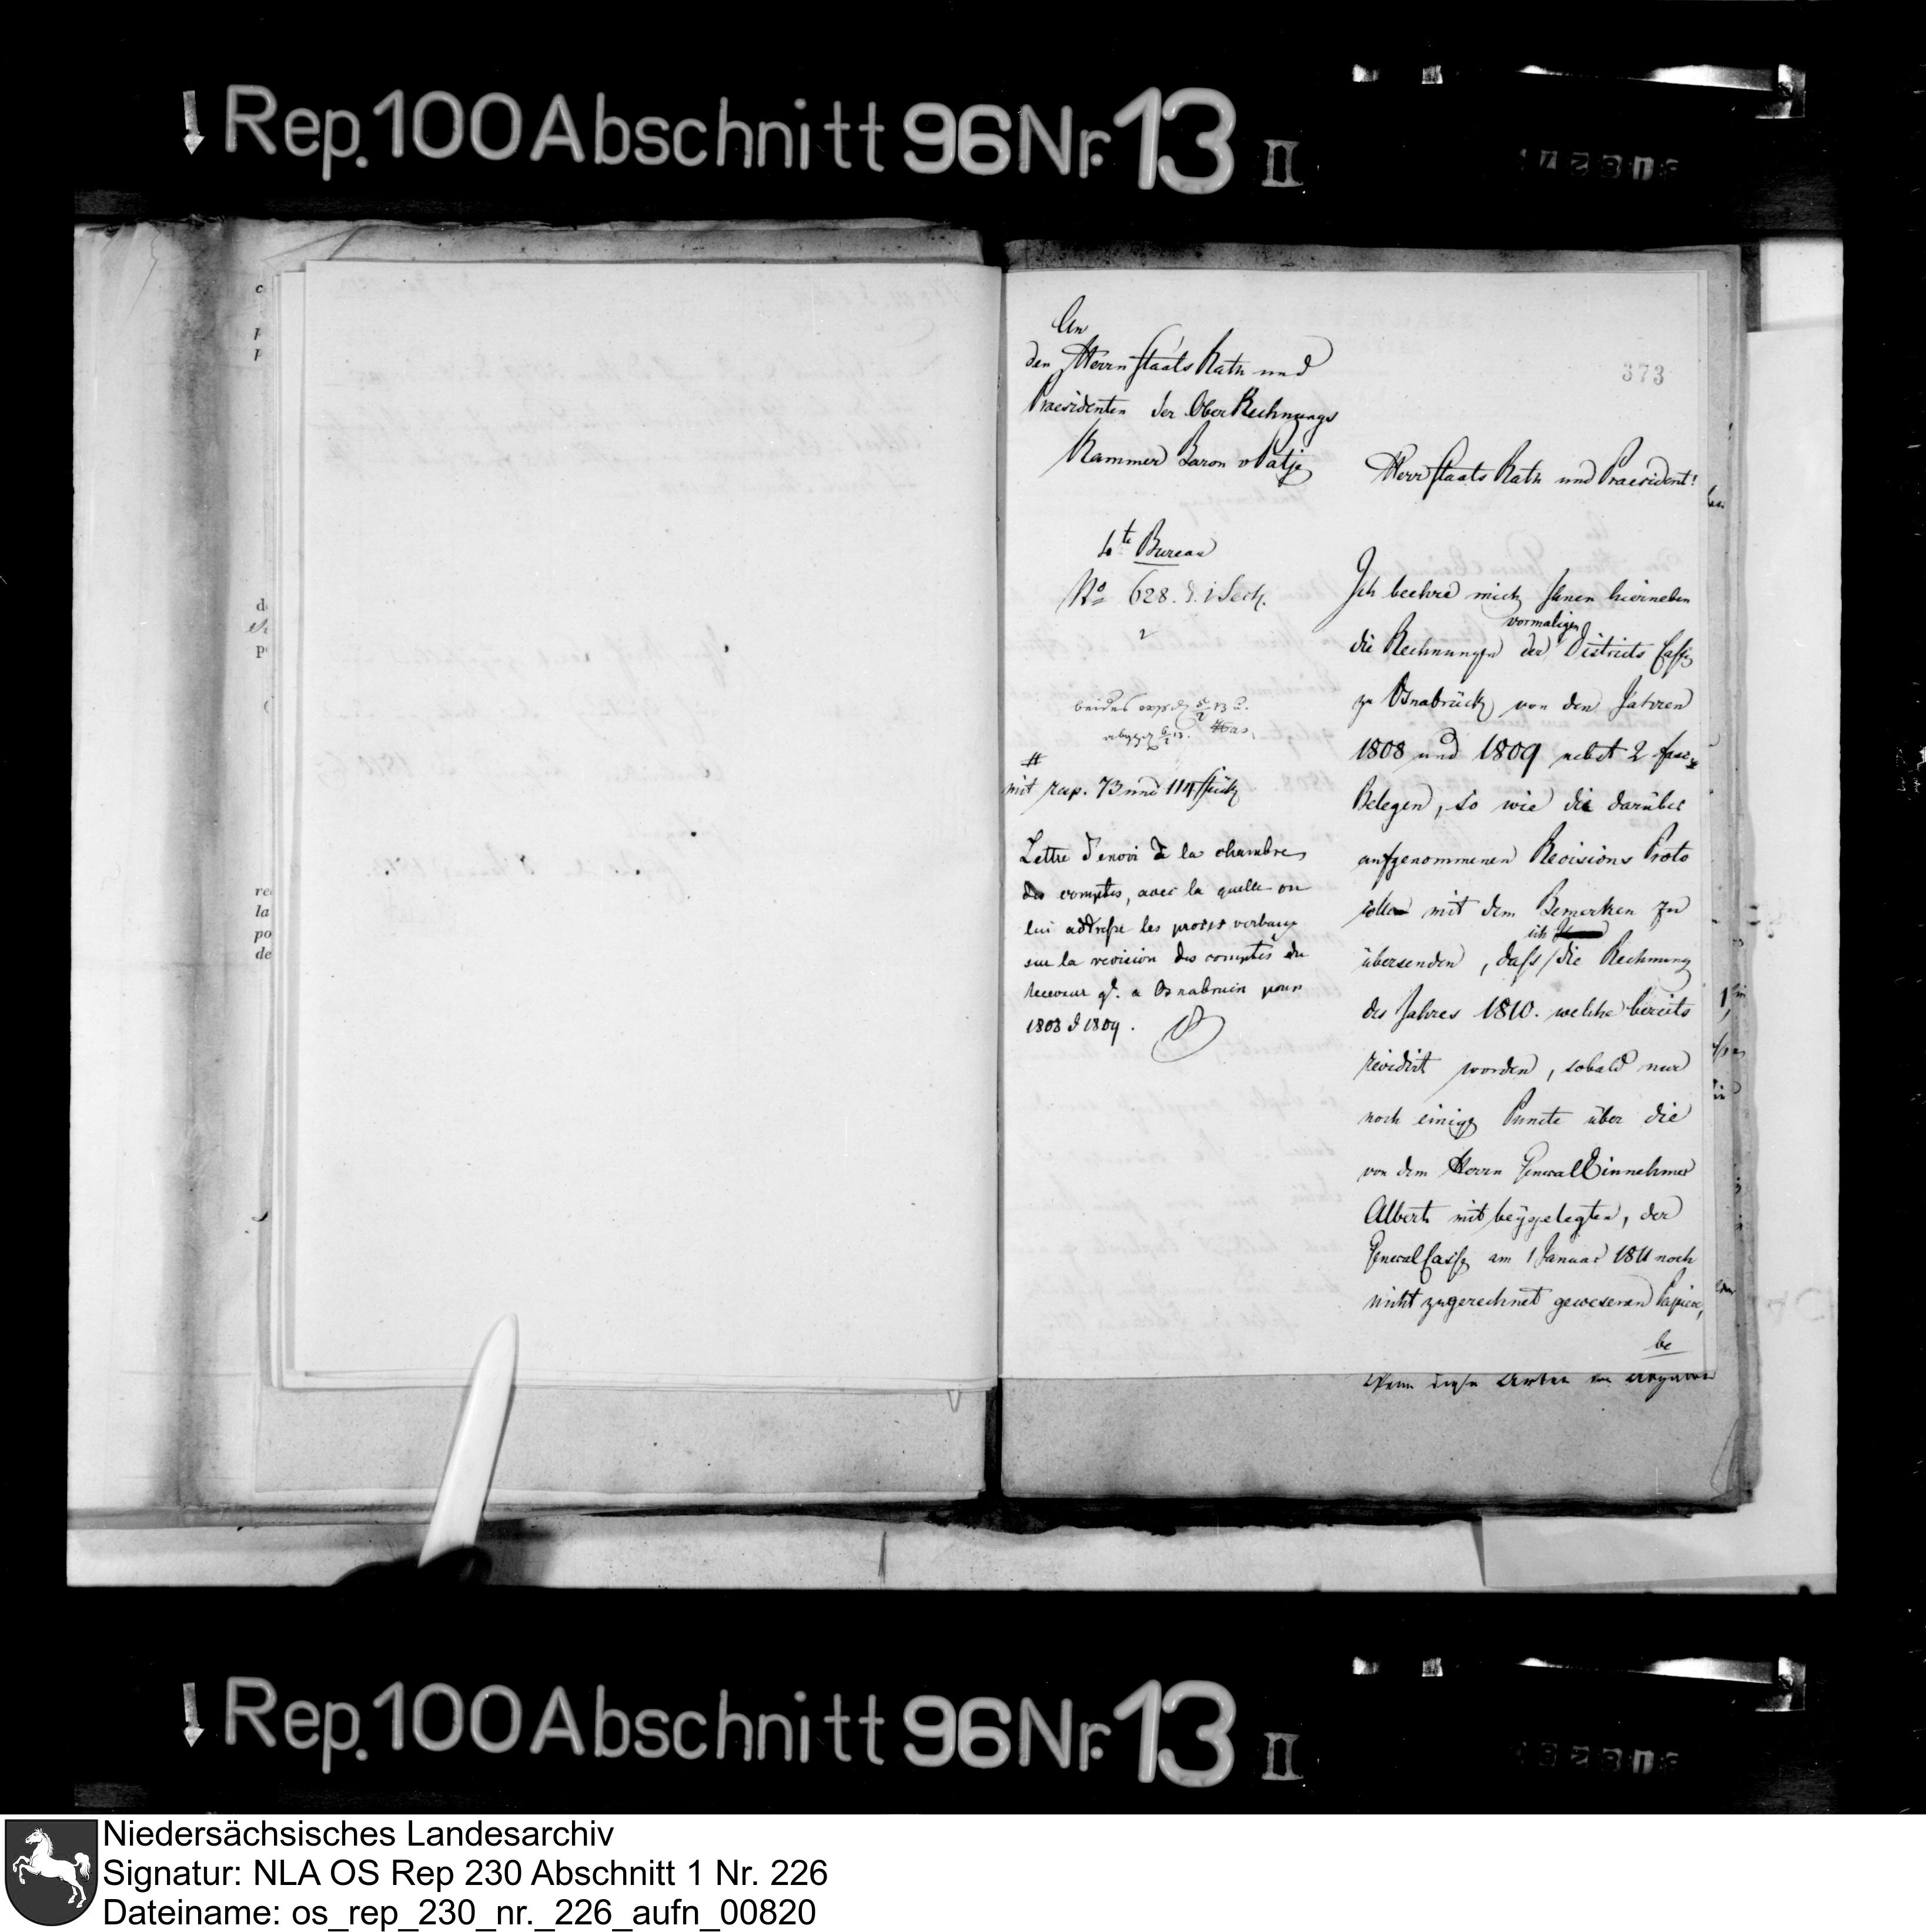 Rep. 100 Abschnitt 96 Nr. 13 II
373
An
den Herrn Staats Rath und
Praesidenten der Ober Rechnungs
Kammer Baron v Patje
Bureau
No 628. 1 Sect.
beides
#
mit resp. 73 und 114 Stück
Lettre d'envoi à la chambre
des comptes, avec la quelle on
lui addresse les proces verbaux
sur la revision des comptes du
receveur gl. a Osnabruck pour
1808 & 1809.
Herr Staats Rath und Praesident!
Ich beehre mich Ihnen hierneben
vormaligen
die Rechnungen der Districts Casse
zu Osnabrück von den Jahren
1808 und 1809 nebst 2 fasc.
Belegen, so wie die darüber
aufgenommenen Revisions Proto
colle mit dem Bemerken zu
ich
übersenden, daß die Rechnung
des Jahres 1810. welche bereits
revidirt worden, sobald nur
noch einige Puncte über die
von dem Herrn General Einnehmer
Alberti mit beygelegten, der
General Casse am 1 Januar 1811 noch
nicht zugerechnet gewesenen Papiere,
be
Rep. 100 Abschnitt 96 Nr. 13 II
Niedersächsisches Landesarchiv
Signatur: NLA OS Rep 230 Abschnitt 1 Nr. 226
Dateiname: os_rep_230_nr._226_aufn_00820